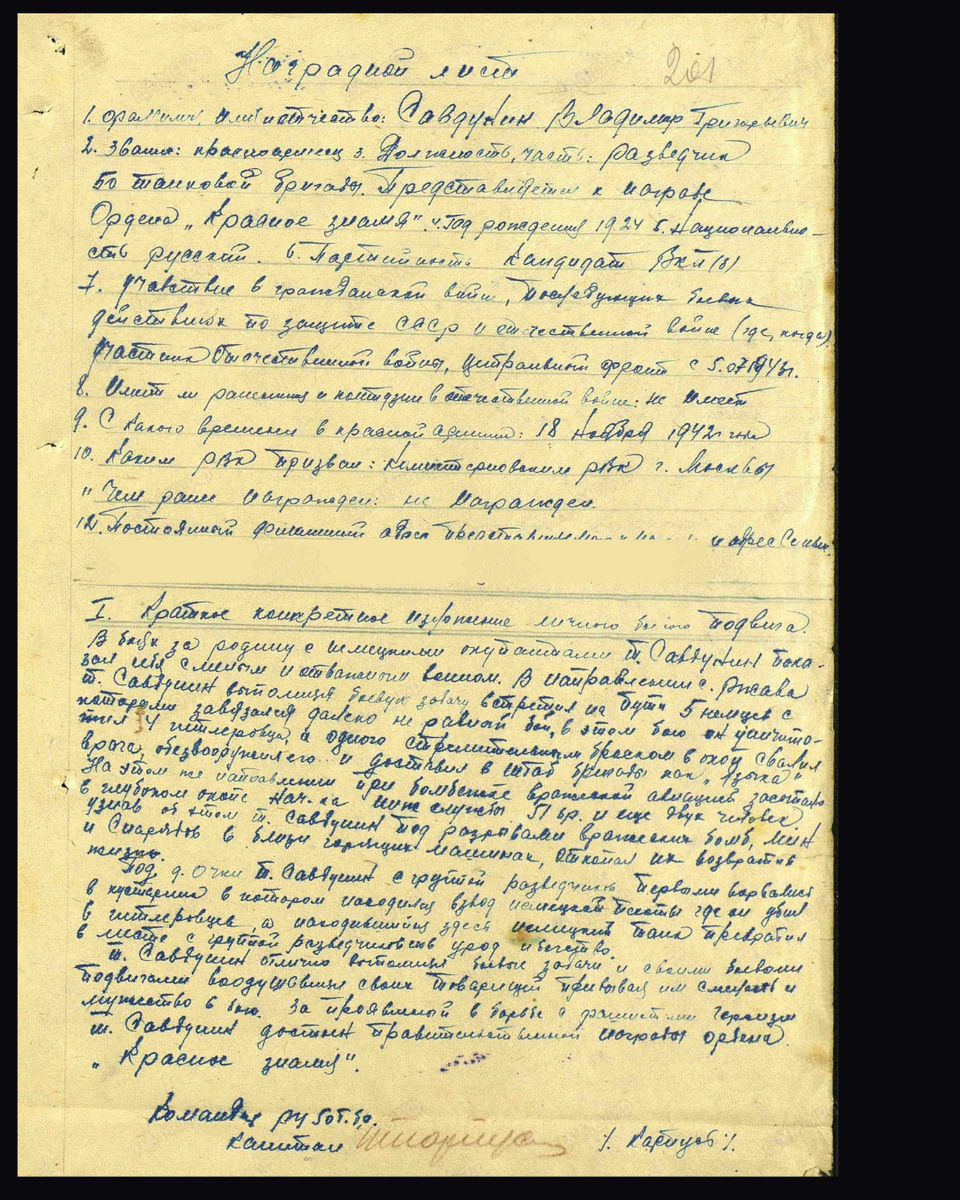 Наградной лист
201
1. Фамилия, имя и отчество: Савдунин Владимир Григорьевич
2. Звание: красноармеец 3. Должность, часть: разведчик
50 танковой бригады. Представляется к награде
Ордена „Красное знамя". 4. Год рождения 1924 5. Националь-
сть русский. 6. Партийность Кандидат ВКП(б)
7. Участвие в гражданской войне, последующих боевых
действиях по защите СССР и отечественной войне (где, когда)
Участник Отечественной войны, Центральный фронт с 5.07.1943г.
8. Имеет ли ранения и контузии в отечественной войне: не имеет
9. С какого времени в красной армии: 18 ноября 1942 года
10. Каким РВК призван: Коминтерновским РВК г. Москвы
11 Чем ранее награжден: не награжден.
12. Постоянный домашний адрес и адрес семьи
I. Краткое конкретное изложение личного боевого подвига.
В боях за родину с немецкими окупантами т. Савдунин пока-
зал себя смелым и отважным воином. В направлении с. Ржава
т. Савдунин выполняя боевую задачу встретил на пути 5 немцев с
которыми завязался далеко не равный бой, в этом бою он уничто-
жил 4 гитлеровца, а одного стремительным броском в окоп свалил
врага, обезвооружил его и доставил в штаб бригады как „языка"
На этом же направлении при бомбежке вражеской авиацией засыпало
в глубоком окопе Нач-ка инж службы бр. и еще двух человек
узнав об этом т. Савдунин под разрывами вражеских бомб, мин
и снарядов в близи горящих машинах, откопал их возвратив
жизнь.
Под д. Очки т. Савдунин с группой разведчиков первыми ворвались
в кустарник в котором находился взвод немецкой пехоты где он убил
гитлеровцев, а находившийся здесь немецкий танк превратил
в месте с группой разведчиков в бегство.
т. Савдунин отлично выполнял боевые задачи и своими боевыми
подвигами воодушевлял своих товарищей прививая им смелость и
мужество в бою. За проявленной в борьбе с фашистами героизм
т. Савдунин достоин правительственной награды ордена
„Красное знамя".
Командир РУ 50т.бр.
капитан